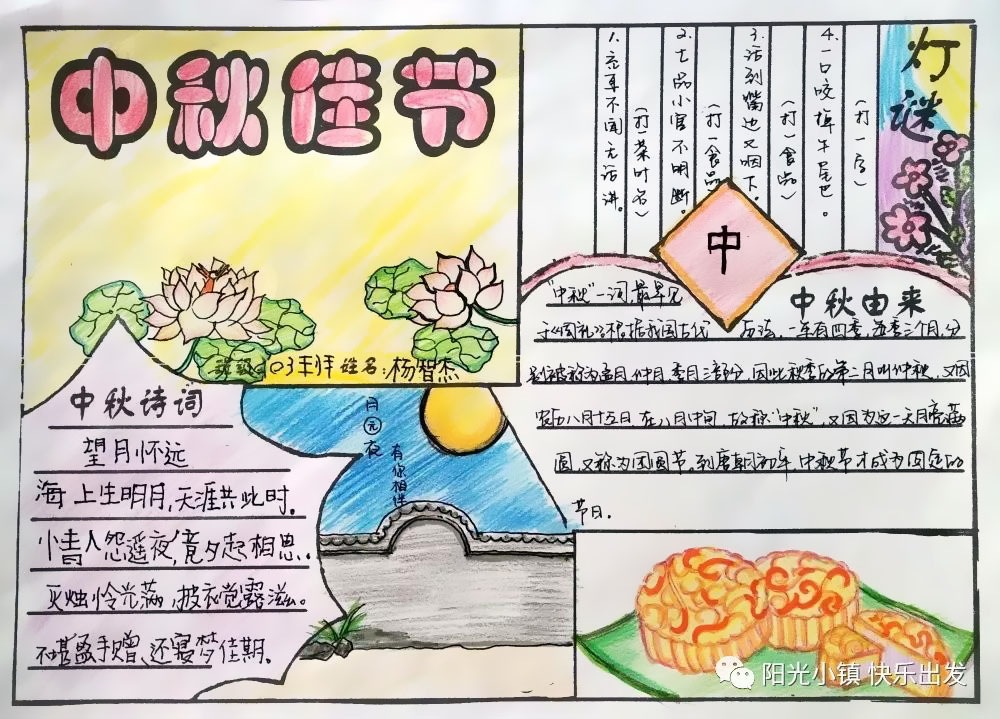 中秋佳节
班级:03年4班 姓名:杨智杰
灯谜
1.充耳不闻无话讲。
(打一茶叶名)
2.七品小官不明断。
(打一食品)
3.话到嘴边又咽下。
(打一食品)
4.一口咬掉牛尾巴。
(打一字)
中
中秋由来
"中秋"一词最早见
于《周礼》根据我国古代 历法,一年有四季,每季三个月,分
别被称为孟月仲月季月三部分,因此秋季的第二月叫仲秋,又因
农历八月十五日,在八月中间,故称"中秋",又因为这一天月亮满
圆,又称为团圆节,到唐朝初年,中秋节才成为固定的
节日.
中秋诗词
望月怀远
海上生明月,天涯共此时.
情人怨遥夜,竟夕起相思.
灭烛怜光满,披衣觉露滋.
不堪盈手赠,还寝梦佳期.
月圆夜
有你相伴
阳光小镇 快乐出发